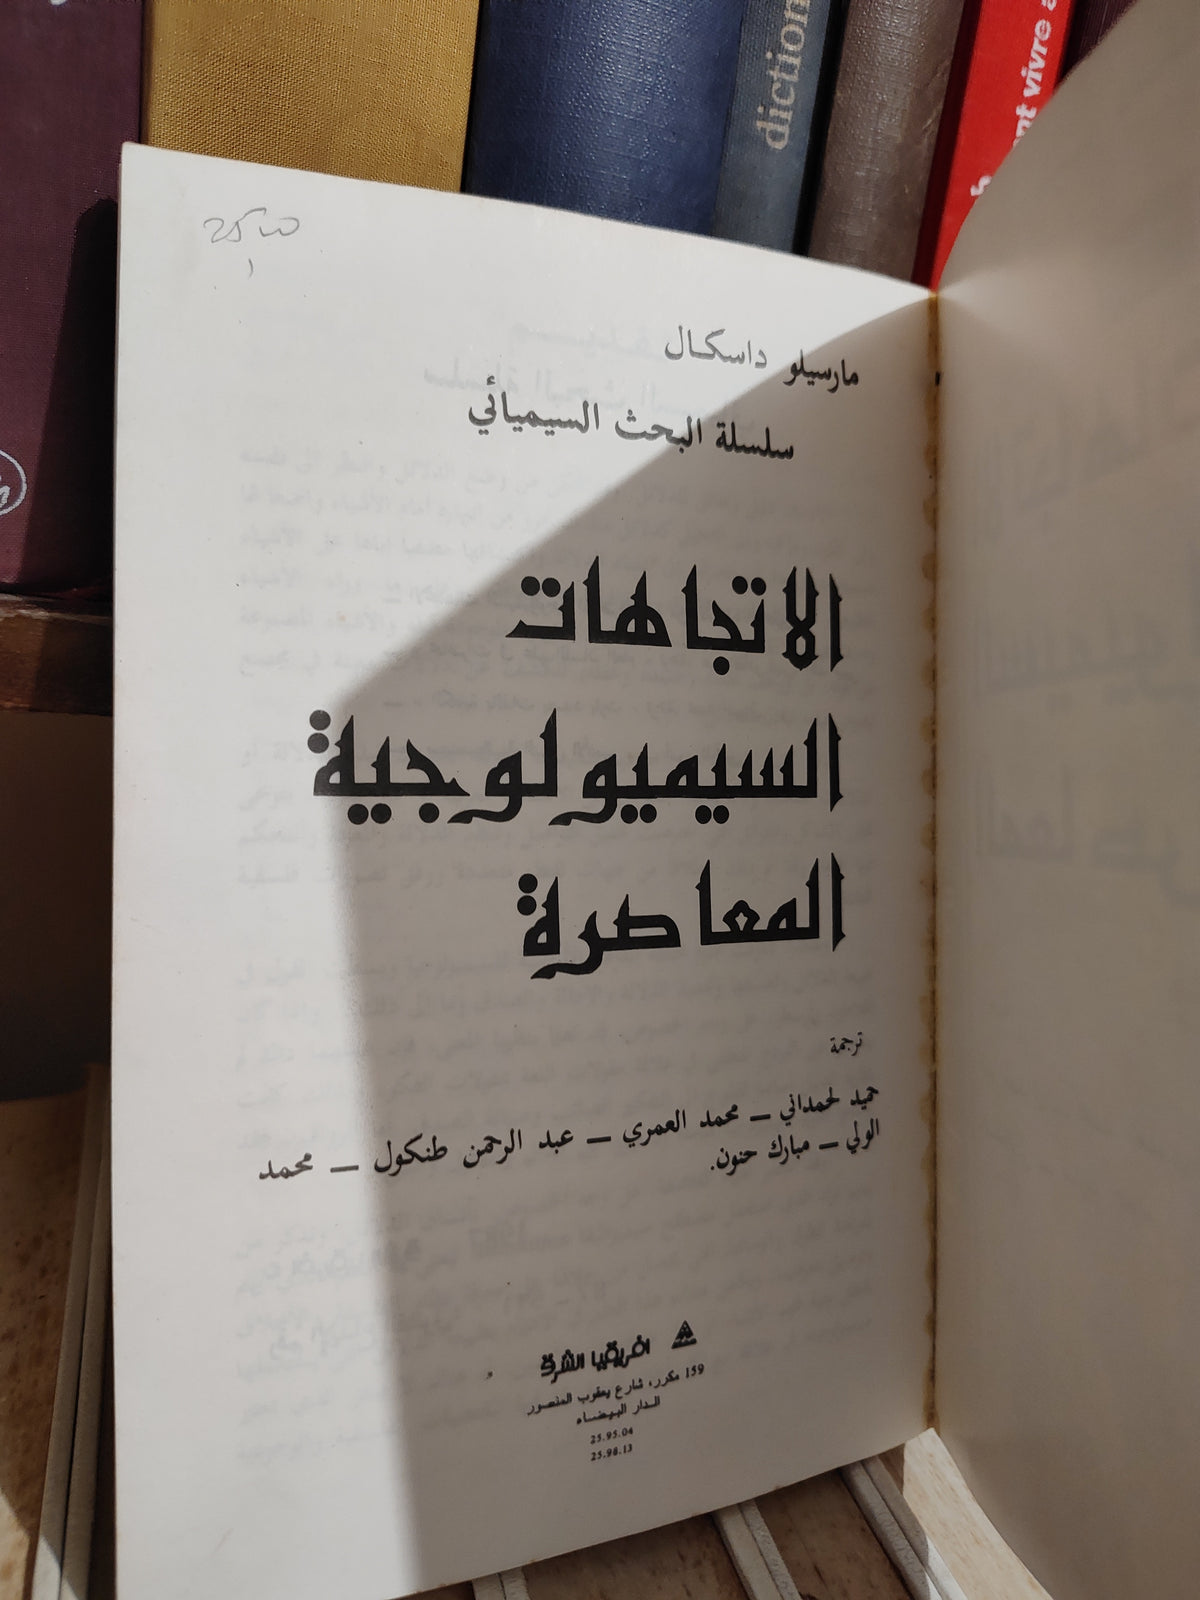 diction
nt vivre
مارسيلو داسكال
سلسلة البحث السيميائي
الاتجاهات
السيميولوجية
المعاصرة
ترجمة
حميد لحمداني – محمد العمري – عبد الرحمن طنكول – محمد
الولي – مبارك حنون.
افريقيا الشرق
159 مكرر، شارع يعقوب المنصور
الدار البيضاء
25.95.04
25.98.13